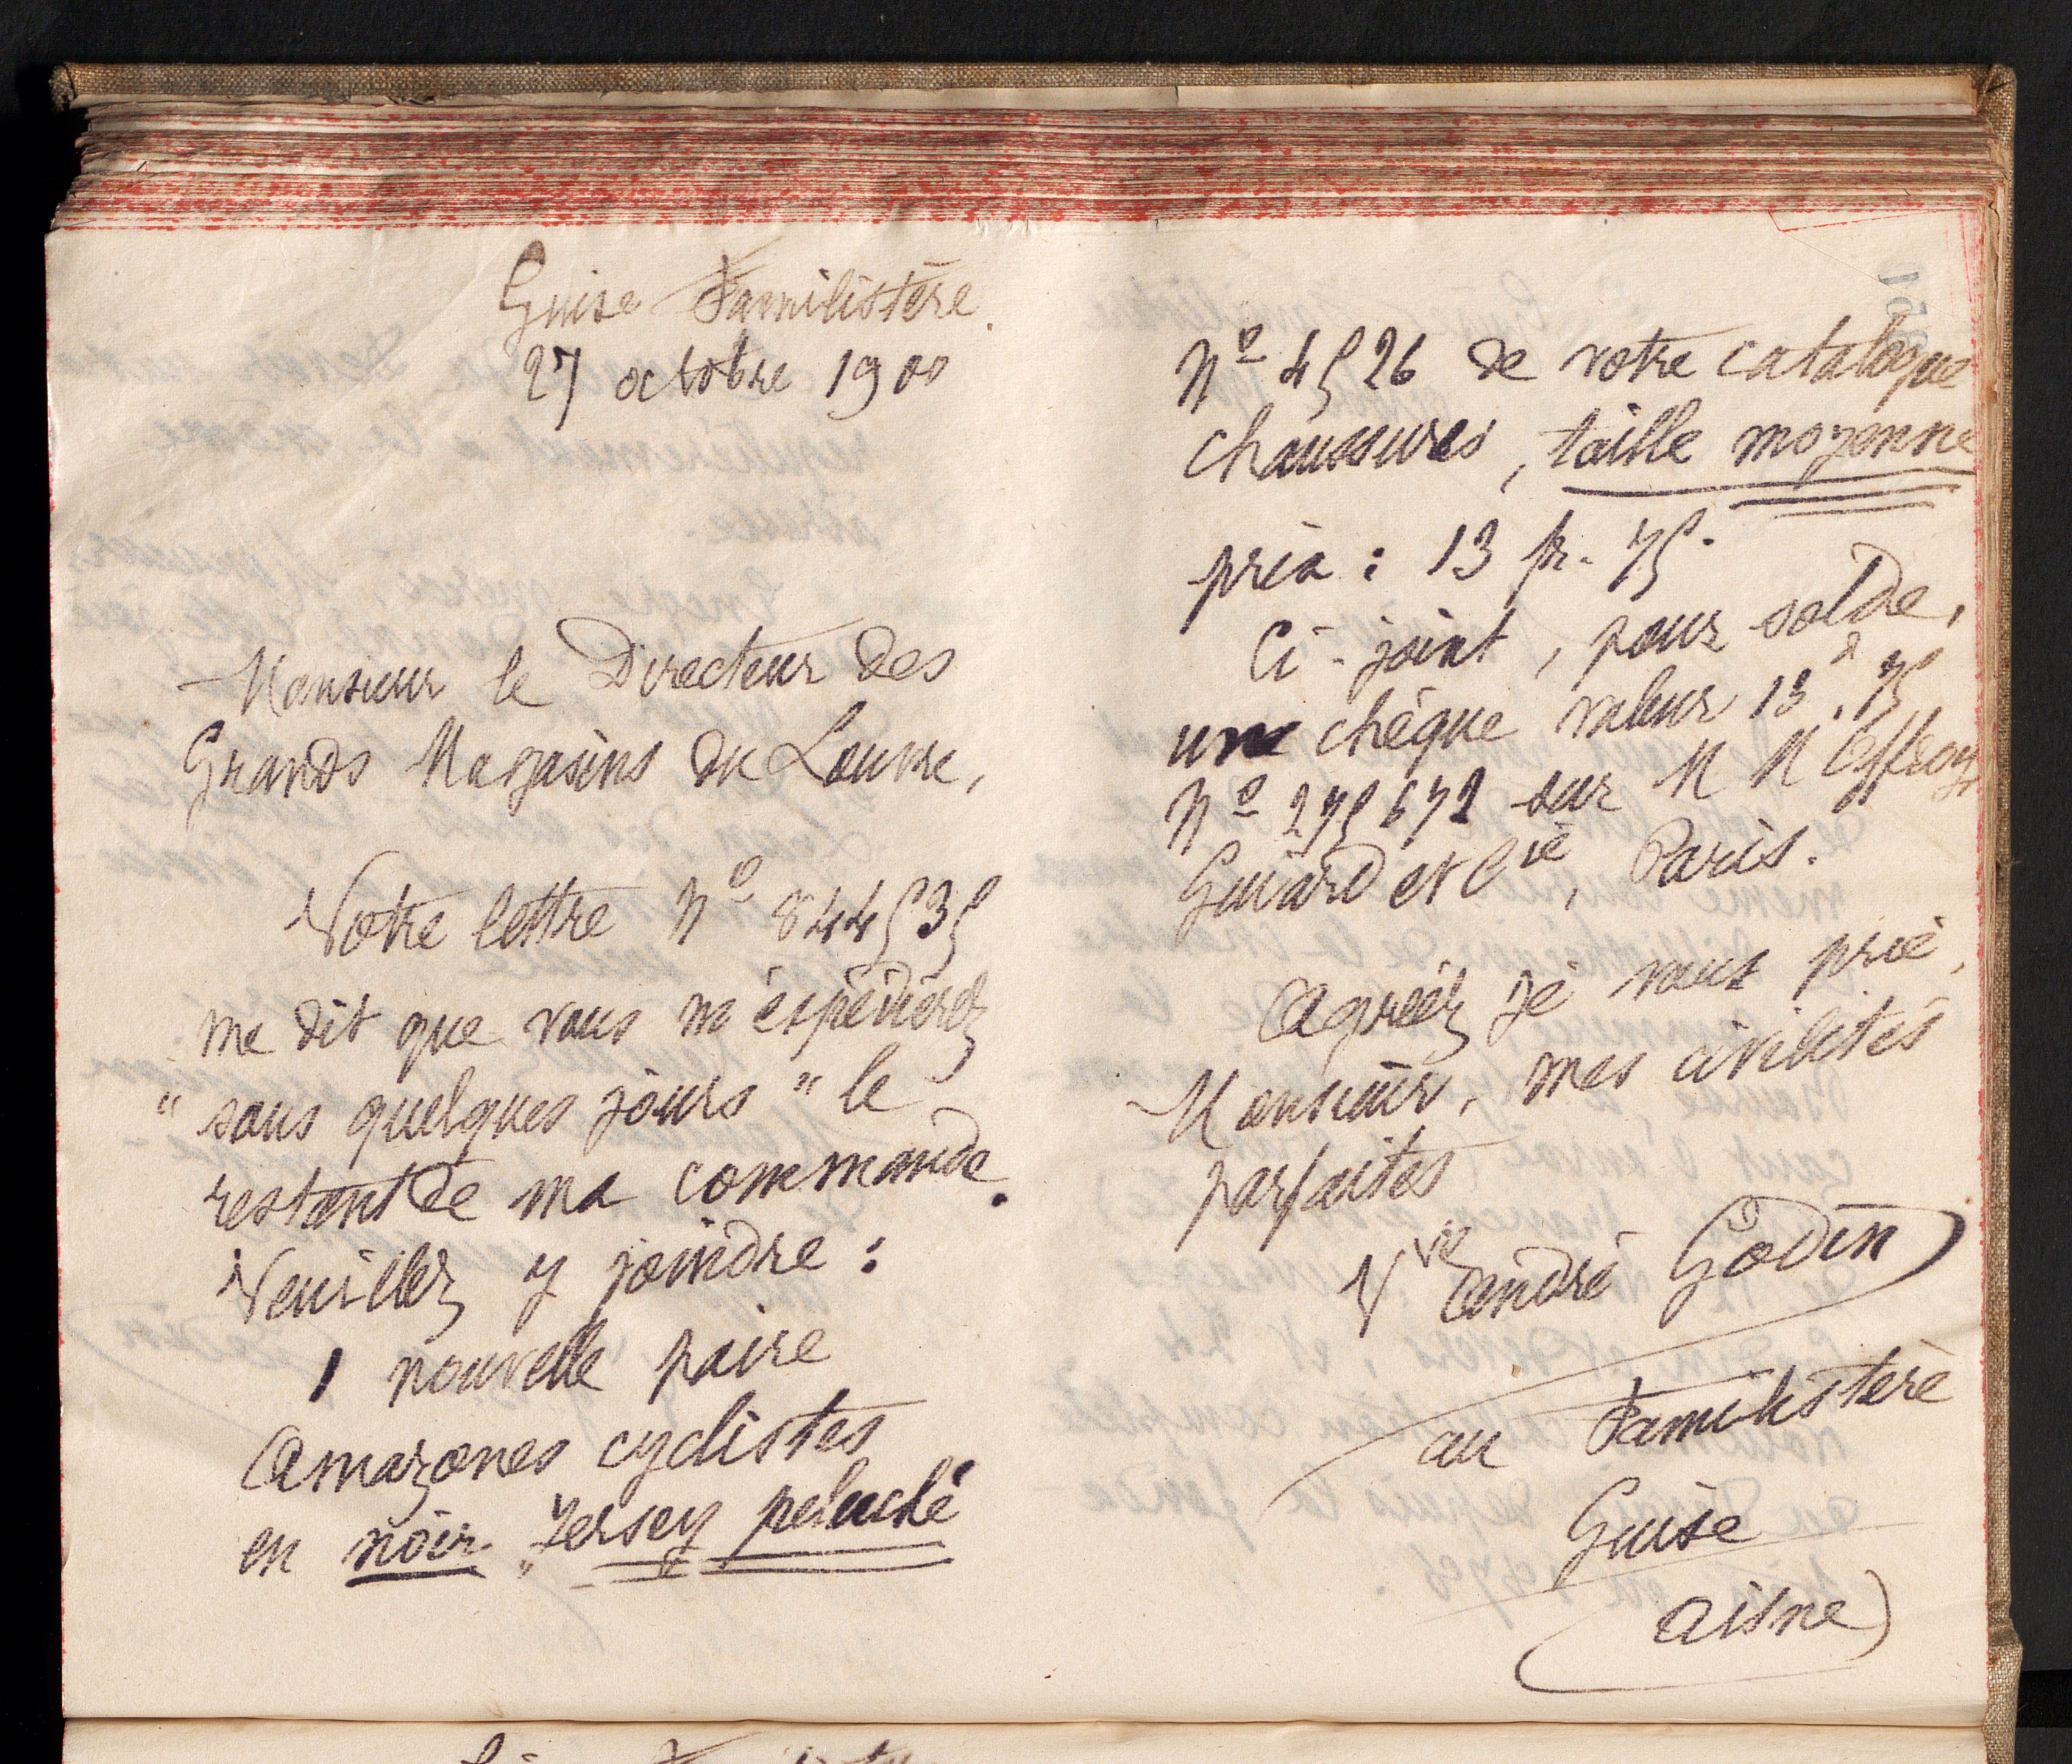 Guise Familistère.
27 octobre 1900
Monsieur le Directeur des
Grands Magasins du Louvre,
Votre lettre Nº 844535
me dit que vous m'expédierez
" sous quelques jours " le
restant de ma commande.
Veuillez y joindre :
1 nouvelle paire
Amazones cyclistes
en noir " Jersey peluché
Nº 4526 de votre catalogue
chaussures, taille moyenne
prix : 13 fr. 75.
Ci-joint, pour solde,
un chèque valeur 13f.75
Nº 275672 sur M M Offroy
Guiard et Cie, Paris.
Agréez je vous prie,
Monsieur, mes civilités
parfaites
Vve André Godin
au Familistère
Guise
Aisne)